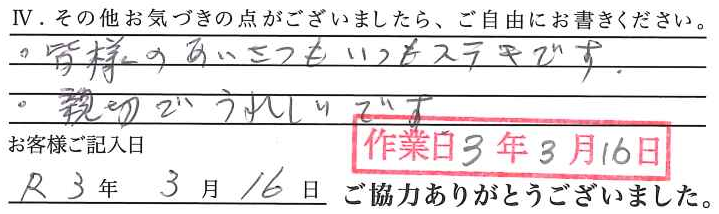 Ⅳ．その他お気づきの点がございましたら、ご自由にお書きください。
。皆様のあいさつもいつもステキです.
・親切でうれしいです
お客様ご記入日
作業日3年3月16日
R3年 3月16日
ご協力ありがとうございました。